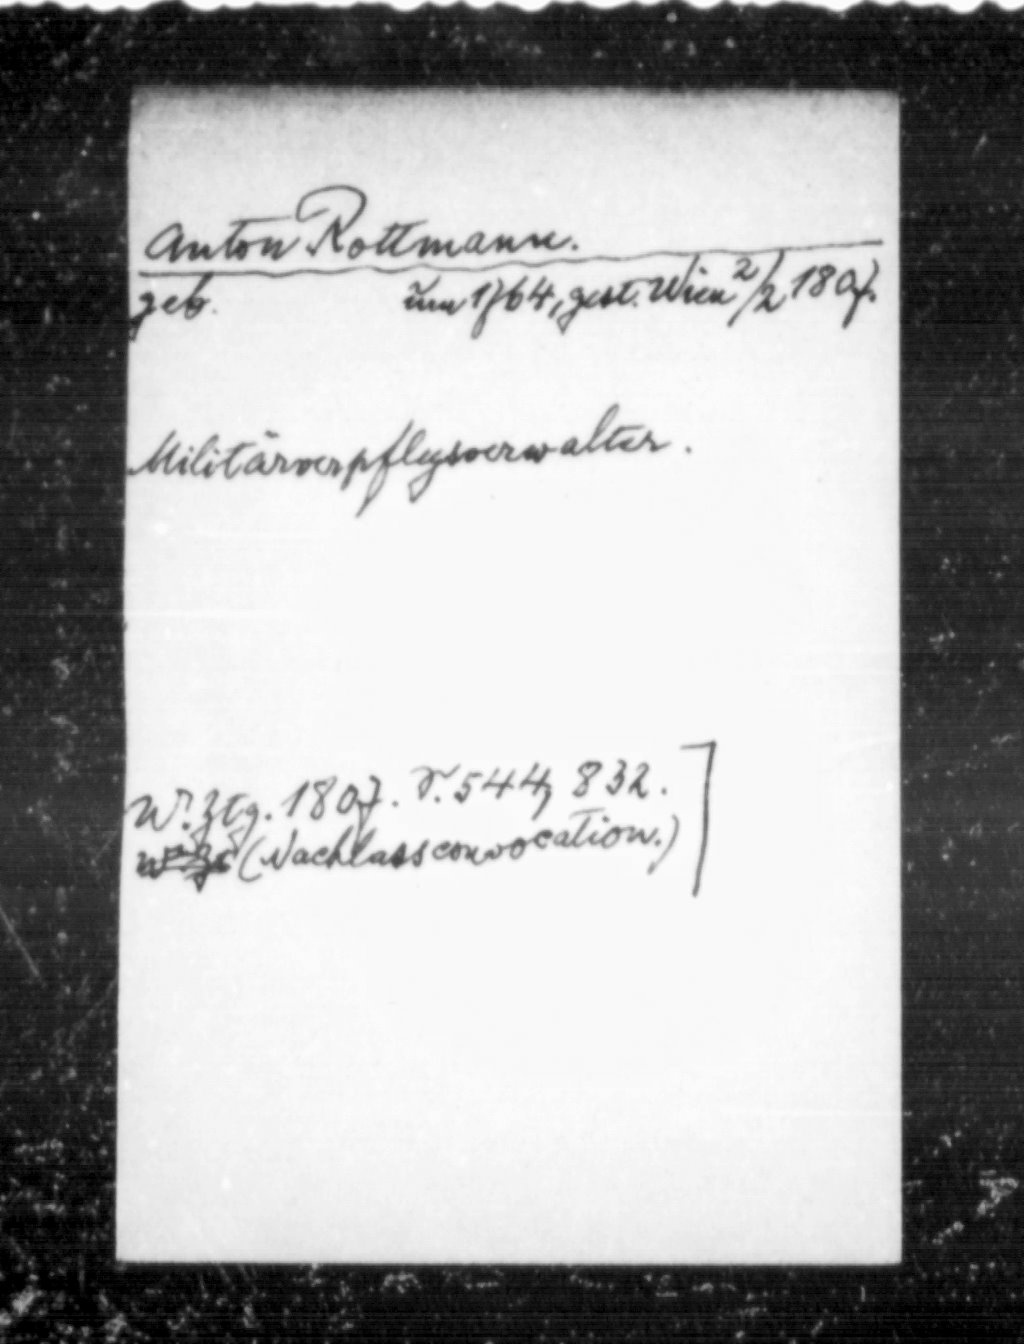 Anton Rottmann.
geb. um 1764, gest. Wien 2/2 1807.
Militärverpflegsverwalter.
W. Ztg. 1807. S. 544, 832.
(Nachlassconvocation.)